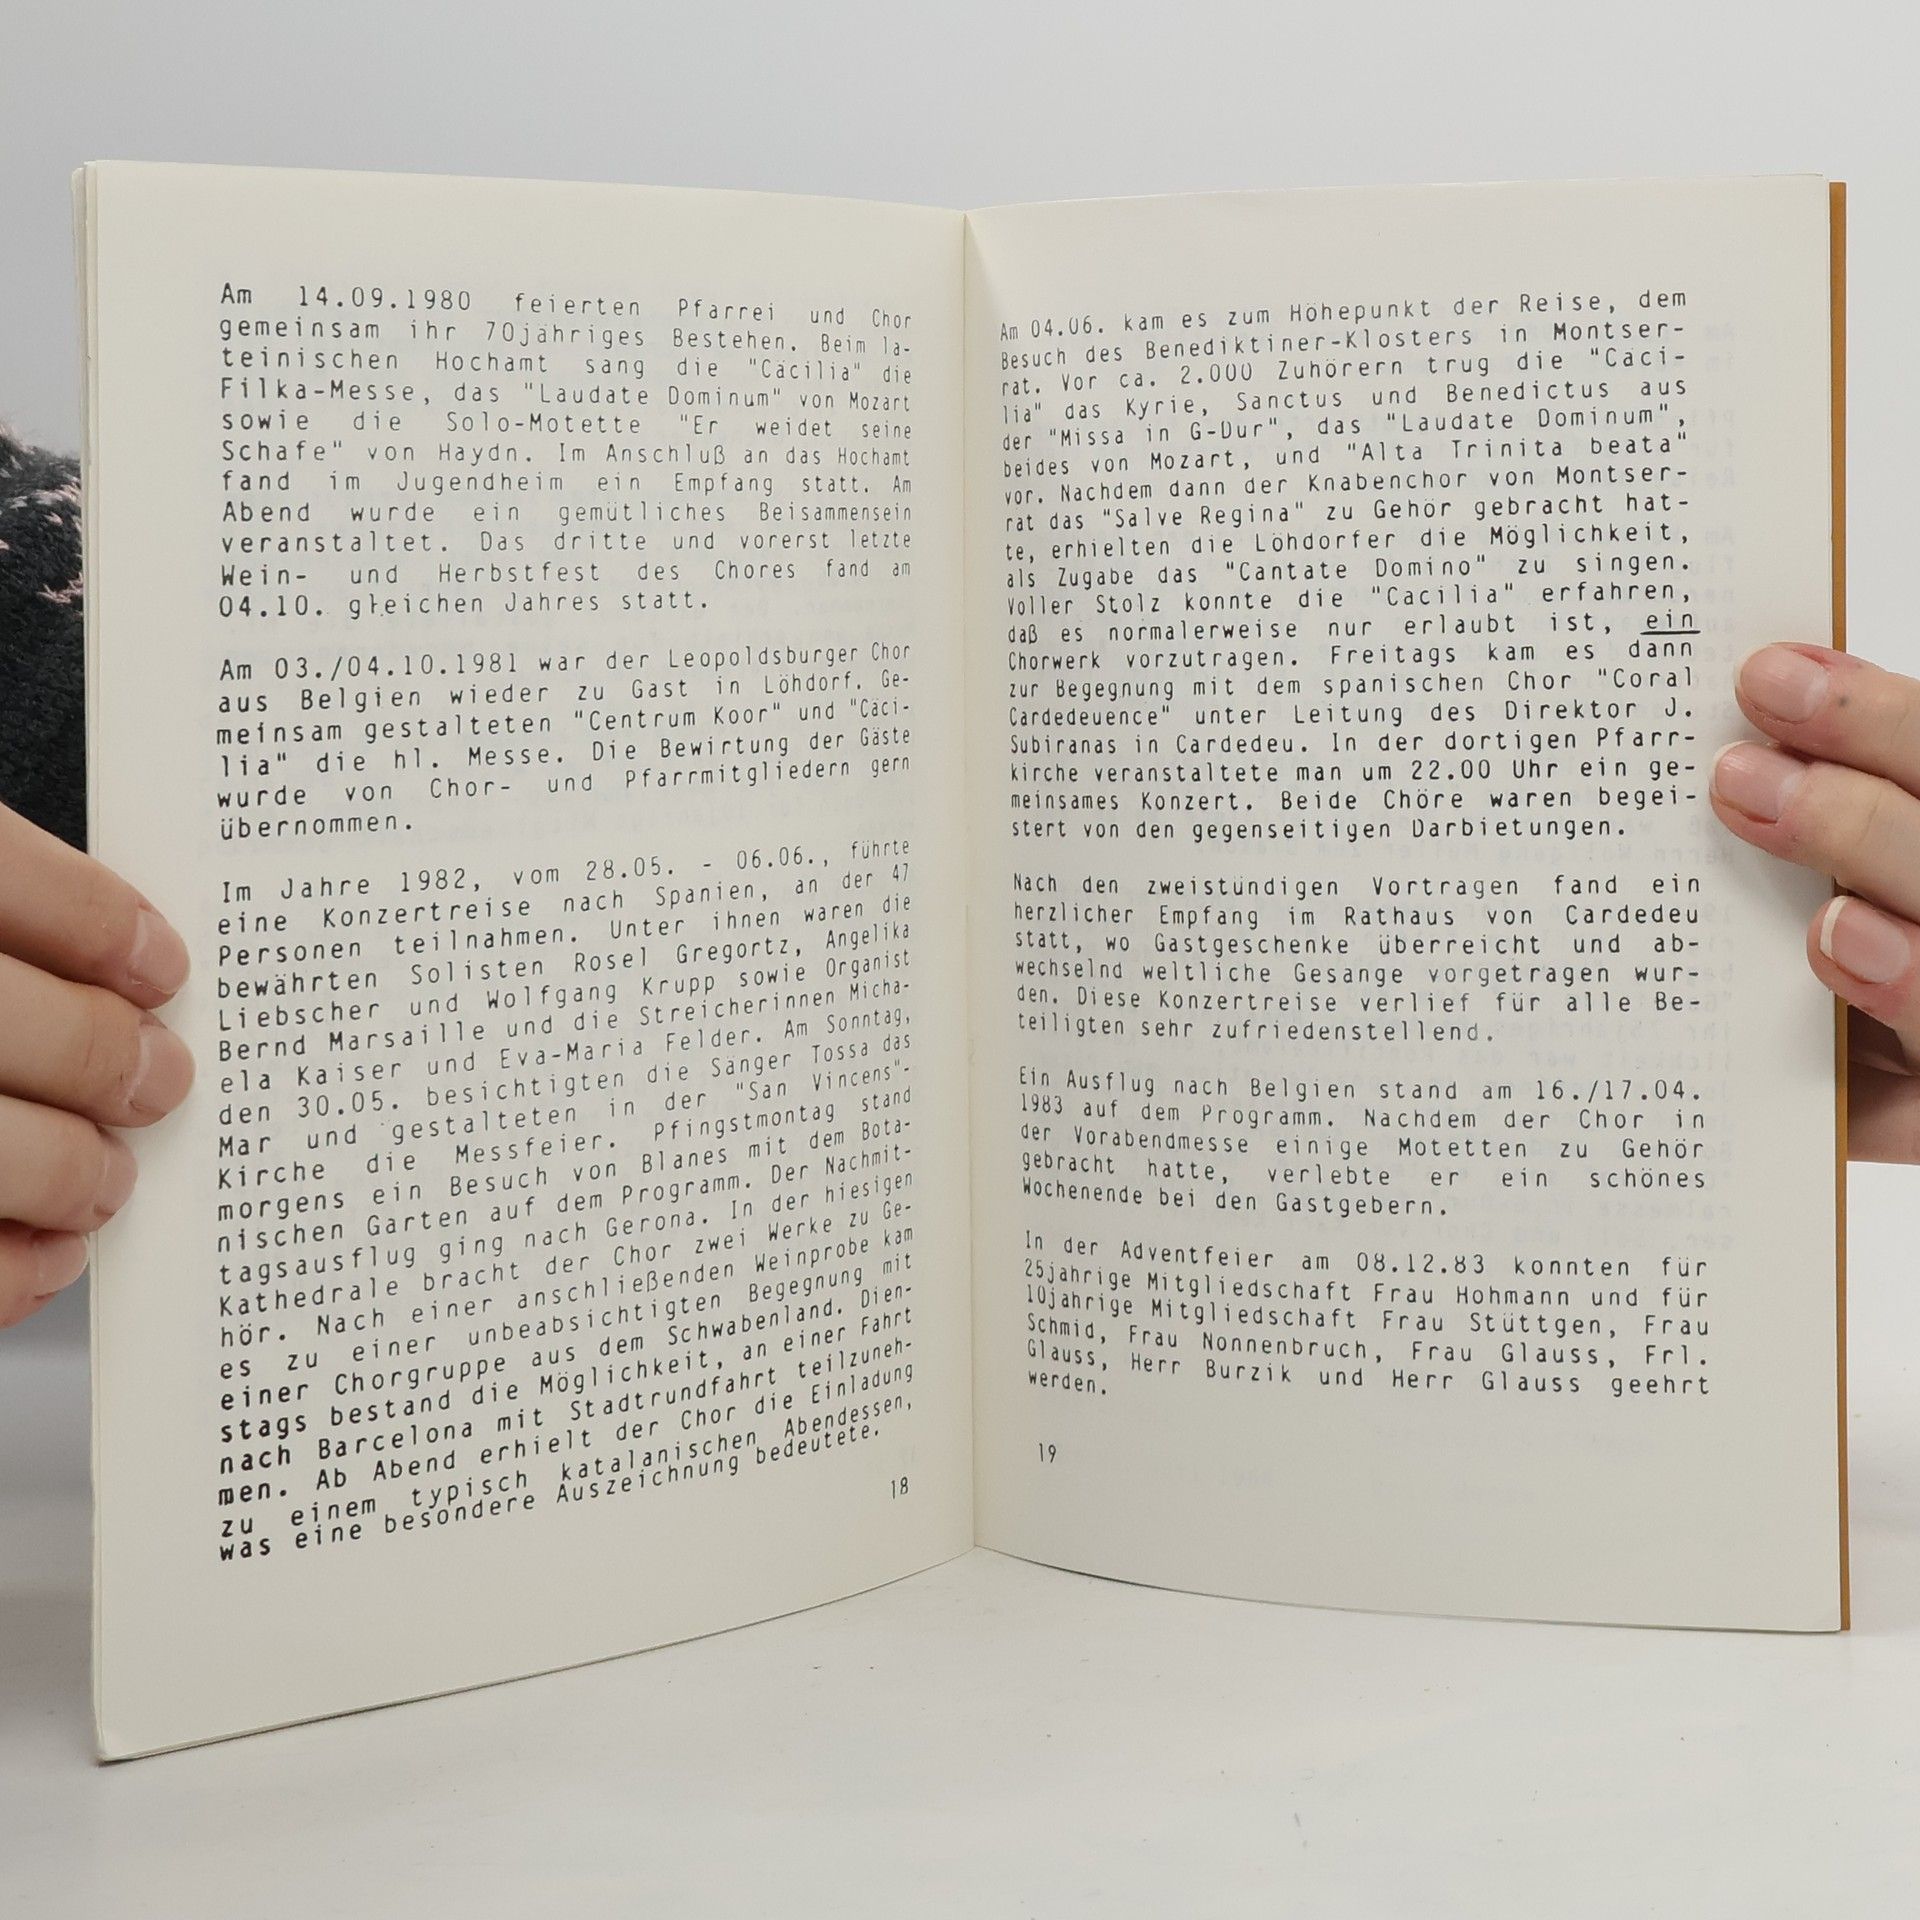 Am 14.09.1980 feierten Pfarrei und Chor
gemeinsam ihr 70jähriges Bestehen. Beim la-
teinischen Hochamt sang die "Cäcilia" die
Filka-Messe, das "Laudate Dominum" von Mozart
sowie die Solo-Motette "Er weidet seine
Schafe" von Haydn. Im Anschluß an das Hochamt
fand im Jugendheim ein Empfang statt. Am
Abend wurde ein gemütliches Beisammensein
veranstaltet. Das dritte und vorerst letzte
Wein- und Herbstfest des Chores fand am
04.10. gleichen Jahres statt.
Am 03./04.10.1981 war der Leopoldsburger Chor
aus Belgien wieder zu Gast in Löhdorf. Ge-
meinsam gestalteten "Centrum Koor" und "Cäci-
lia" die hl. Messe. Die Bewirtung der Gäste
wurde von Chor- und Pfarrmitgliedern gern
übernommen.
Im Jahre 1982, vom 28.05. - 06.06., führte
eine Konzertreise nach Spanien, an der 47
Personen teilnahmen. Unter ihnen waren die
bewährten Solisten Rosel Gregortz, Angelika
Liebscher und Wolfgang Krupp sowie Organist
Bernd Marsaille und die Streicherinnen Micha-
ela Kaiser und Eva-Maria Felder. Am Sonntag,
den 30.05. besichtigten die Sänger Tossa das
Mar und gestalteten in der "San Vincens"-
Kirche die Messfeier. Pfingstmontag stand
morgens ein Besuch von Blanes mit dem Bota-
nischen Garten auf dem Programm. Der Nachmit-
tagsausflug ging nach Gerona. In der hiesigen
Kathedrale bracht der Chor zwei Werke zu Ge-
hör. Nach einer anschließenden Weinprobe kam
es zu einer unbeabsichtigten Begegnung mit
einer Chorgruppe aus dem Schwabenland. Dien-
stags bestand die Möglichkeit, an einer Fahrt
nach Barcelona mit Stadtrundfahrt teilzuneh-
men. Ab Abend erhielt der Chor die Einladung
zu einem typisch katalanischen Abendessen,
was eine besondere Auszeichnung bedeutete.
18
Am 04.06. kam es zum Höhepunkt der Reise, dem
Besuch des Benediktiner-Klosters in Montser-
rat. Vor ca. 2.000 Zuhörern trug die "Cäci-
lia" das Kyrie, Sanctus und Benedictus aus
der "Missa in G-Dur", das "Laudate Dominum",
beides von Mozart, und "Alta Trinita beata"
vor. Nachdem dann der Knabenchor von Montser-
rat das "Salve Regina" zu Gehör gebracht hat-
te, erhielten die Löhdorfer die Möglichkeit,
als Zugabe das "Cantate Domino" zu singen.
Voller Stolz konnte die "Cäcilia" erfahren,
daß es normalerweise nur erlaubt ist, ein
Chorwerk vorzutragen. Freitags kam es dann
zur Begegnung mit dem spanischen Chor "Coral
Cardedeuence" unter Leitung des Direktor J.
Subiranas in Cardedeu. In der dortigen Pfarr-
kirche veranstaltete man um 22.00 Uhr ein ge-
meinsames Konzert. Beide Chöre waren begei-
stert von den gegenseitigen Darbietungen.
Nach den zweistündigen Vorträgen fand ein
herzlicher Empfang im Rathaus von Cardedeu
statt, wo Gastgeschenke überreicht und ab-
wechselnd weltliche Gesänge vorgetragen wur-
den. Diese Konzertreise verlief für alle Be-
teiligten sehr zufriedenstellend.
Ein Ausflug nach Belgien stand am 16./17.04.
1983 auf dem Programm. Nachdem der Chor in
der Vorabendmesse einige Motetten zu Gehör
gebracht hatte, verlebte er ein schönes
Wochenende bei den Gastgebern.
In der Adventfeier am 08.12.83 konnten für
25jährige Mitgliedschaft Frau Hohmann und für
10jährige Mitgliedschaft Frau Stüttgen, Frau
Schmid, Frau Nonnenbruch, Frau Glauss, Frl.
Glauss, Herr Burzik und Herr Glauss geehrt
werden.
19